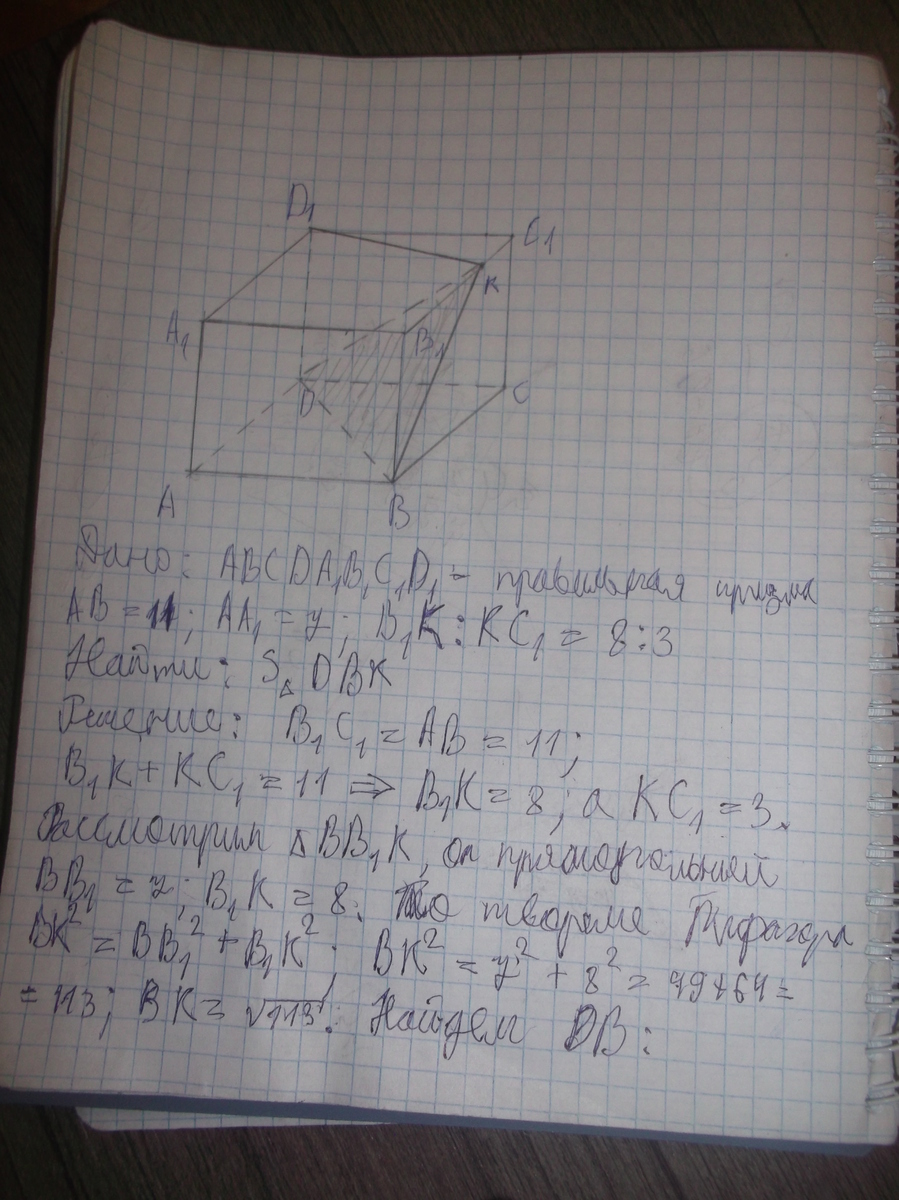 D₁
C₁
K
A₁
B₁
D
C
A
B
Дано: ABCDA₁B₁C₁D₁ - правильная призма
AB = 11; AA₁ = 7; B₁K : KC₁ = 8:3
Найти: S△ DBK
Решение: B₁C₁ = AB = 11;
B₁K + KC₁ = 11 ⇒ B₁K = 8; а KC₁ = 3.
Рассмотрим △BB₁K, он прямоугольный
BB₁ = 7; B₁K = 8. По теореме Пифагора
BK² = BB₁² + B₁K²; BK² = 7² + 8² = 49+64=
= 113; BK = √113. Найдем DB: